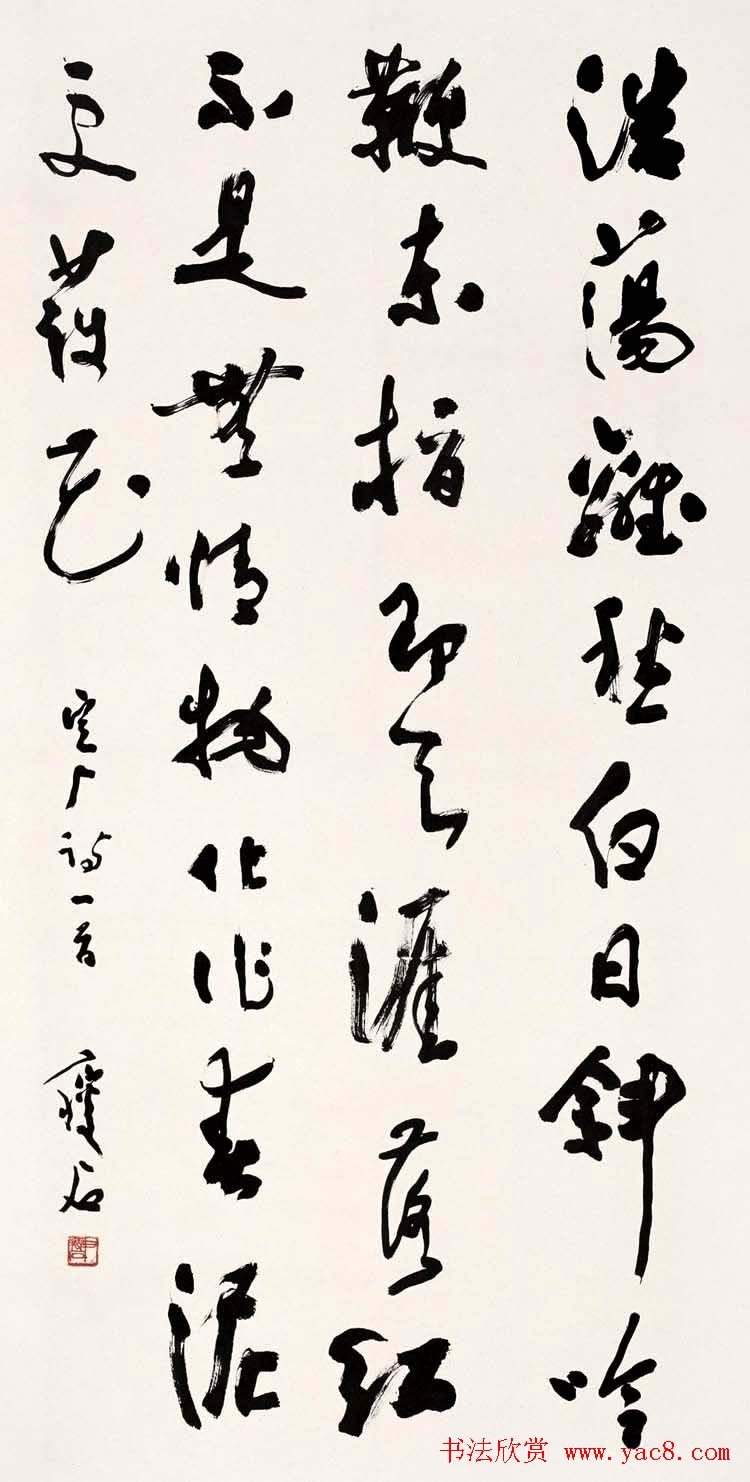 浩蕩離愁白日斜吟
鞭東指即天涯落紅
不是無情物化作春泥
更護花 定厂詩一首 瘦石
书法欣赏 www.yac8.com